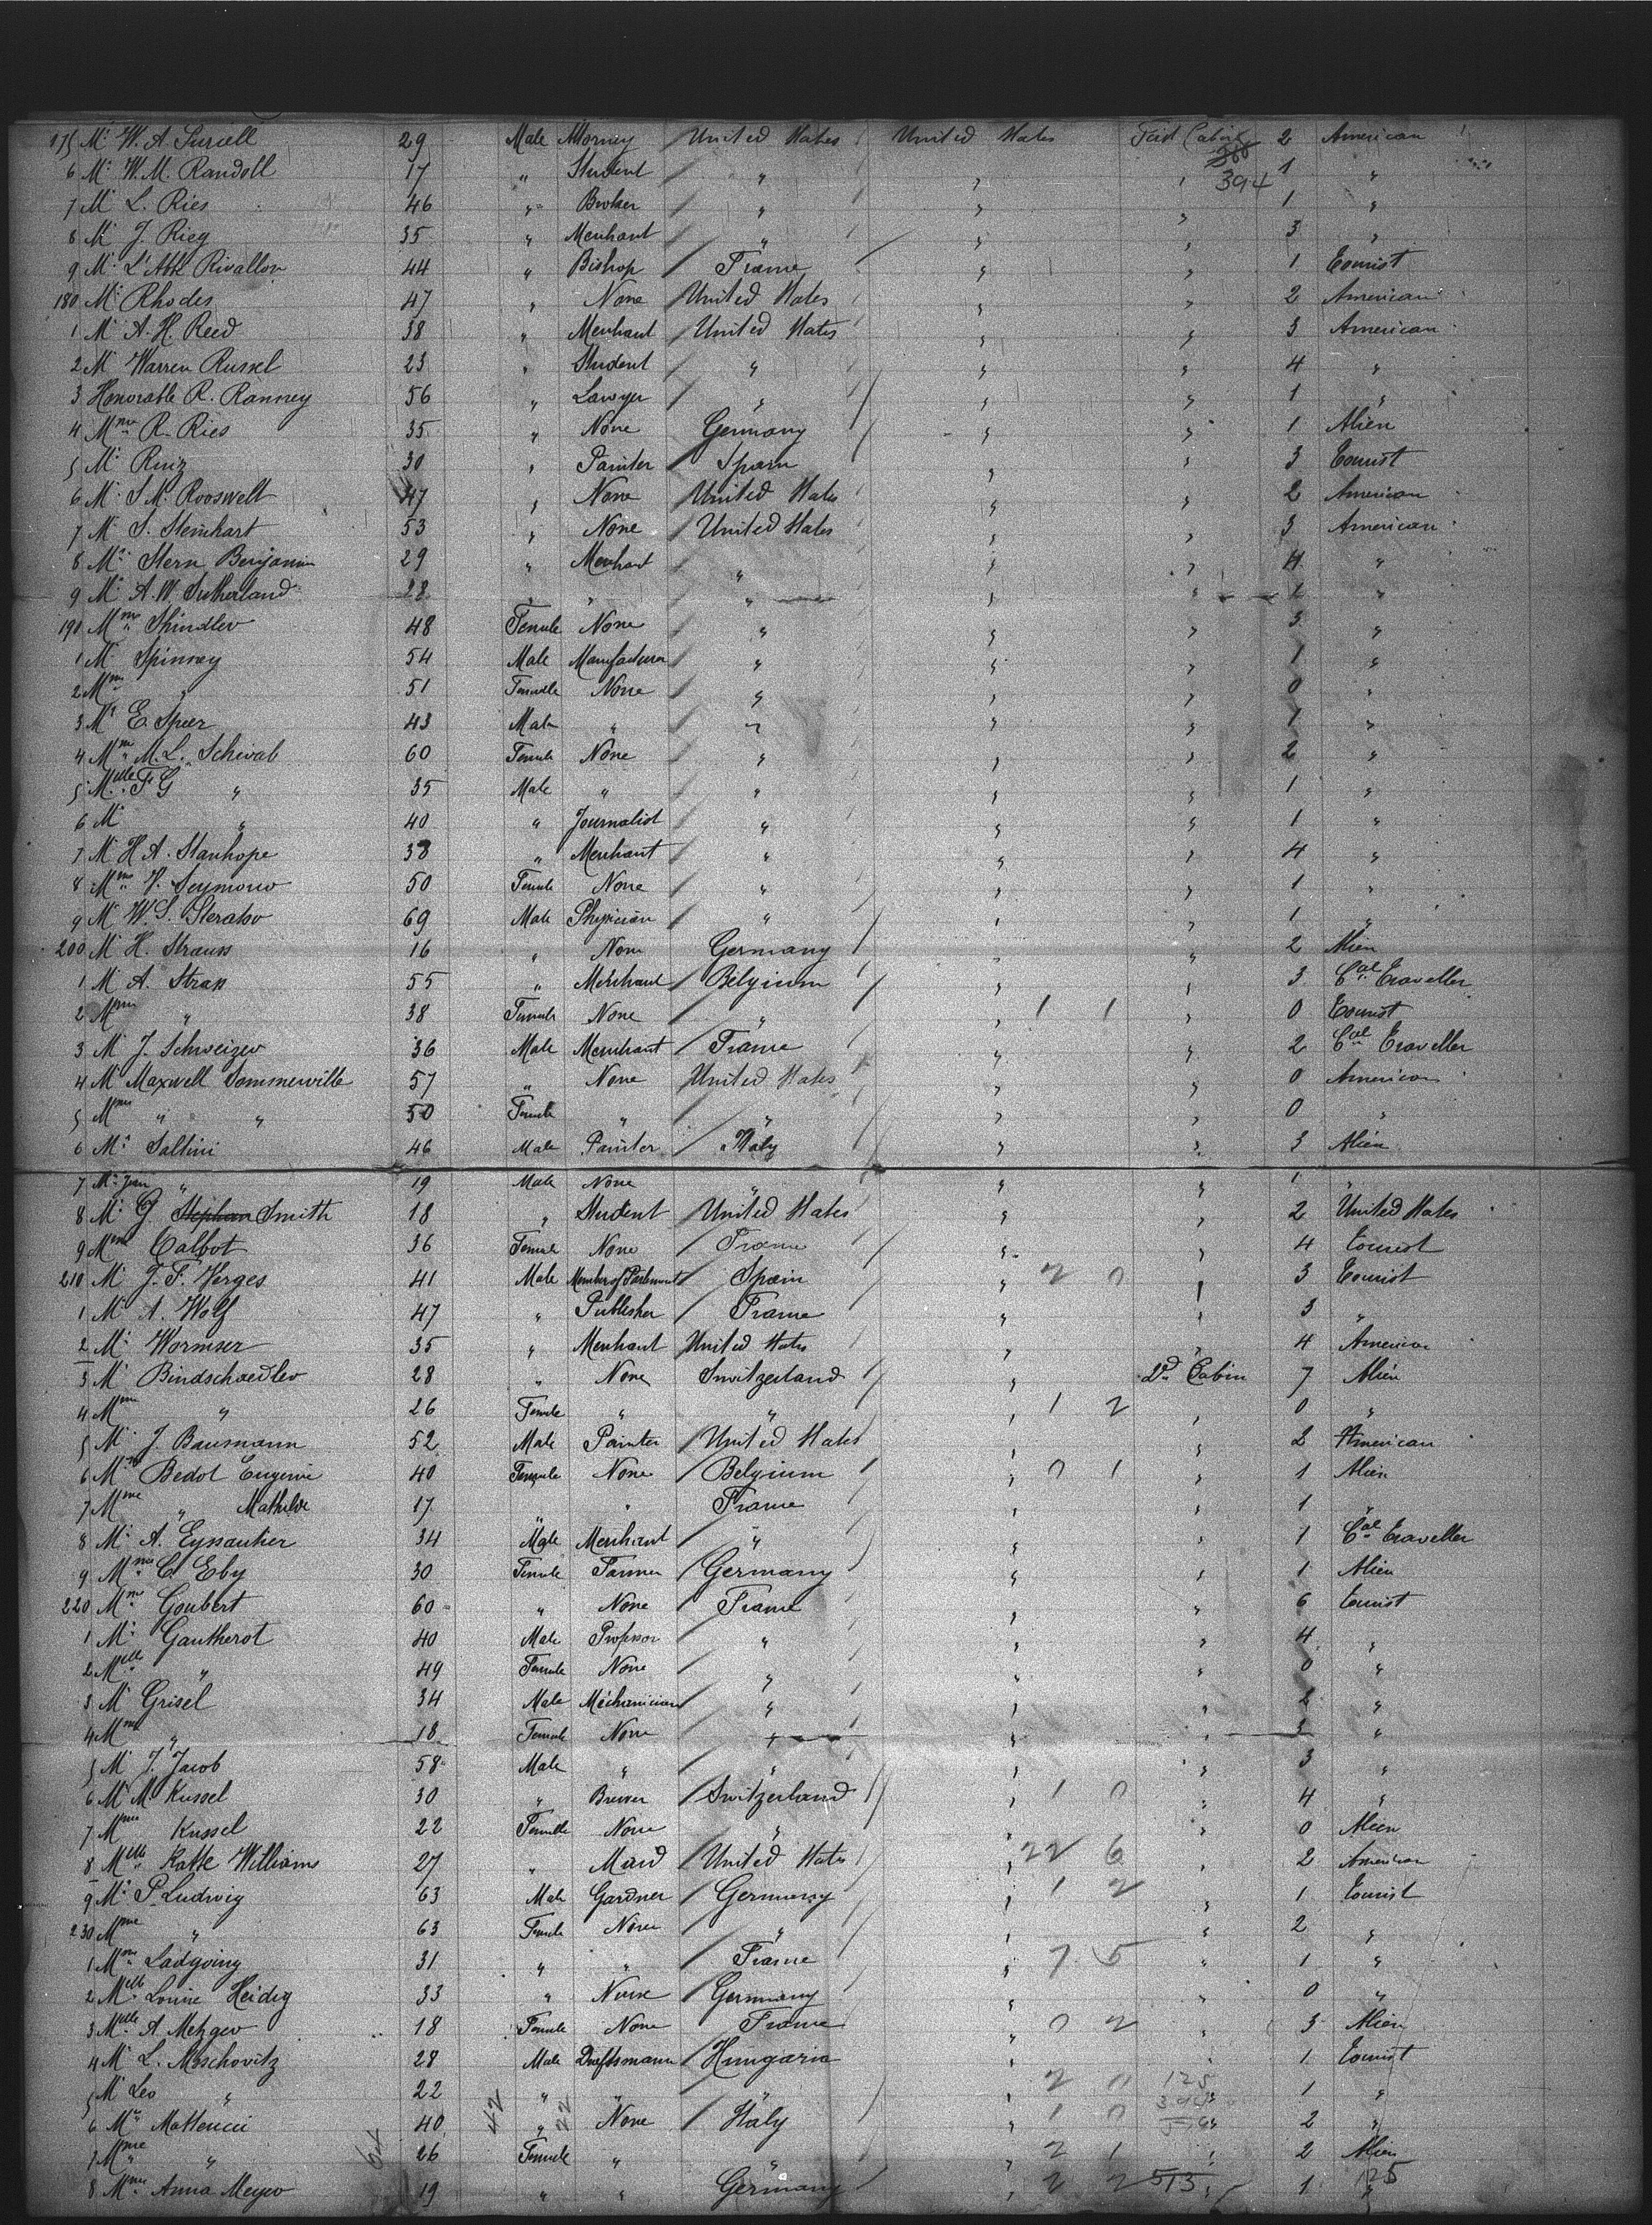 175 Mr W. A. Purcell 29 Male Attorney United States United States First Cabin 2 American
6 Mr W. M. Randoll 17 " Student " " " 394 1 "
7 Mr L. Ries 46 " Broker " " " 1 "
8 Mr J. Rieg 35 " Merchant " " " 3 "
9 Mr L'Abbé Rivallon 44 " Bishop France " " 1 Tourist
180 Mr Rhodes 47 " None United States " " 2 American
1 Mr A. H. Reed 38 " Merchant United States " " 3 American
2 Mr Warren Russel 23 " Student " " " 4 "
3 Honorable R. Ranney 56 " Lawyer " " " 1 "
4 Mme R. Ries 35 " None Germany " " 1 Alien
5 Mr Ruiz 30 " Painter Spain " " 3 Tourist
6 Mr S. M. Rooswelt 47 " None United States " " 2 American
7 Mr S. Steinhart 53 " None United States " " 3 American
8 Mr Stern Benjamin 29 " Merchant " " " 4 "
9 Mr A. W. Sutherland 28 " " " " " 2 "
190 Mme Spindler 48 Female None " " " 3 "
1 Mr Spinney 54 Male Manufacturer " " " 1 "
2 Mme " 51 Female None " " " 0 "
3 Mr E. Speer 43 Male " " " " 1 "
4 Mme M. L. Schwab 60 Female None " " " 2 "
5 Melle F. G " 35 Male " " " " 1 "
6 Mr " 40 " Journalist " " " 1 "
7 Mr H. A. Stanhope 38 " Merchant " " " 4 "
8 Mme V. Seymour 50 Female None " " " 1 "
9 Mr W. S. 69 Male Physician " " " 1 "
200 Mr H. Strauss 16 " None Germany " " 2 Alien
1 Mr A. Strass 55 " Merchant Belgium " " 3 Cal Traveller
2 Mme " 38 Female None " " 1 1 " 0 Tourist
3 Mr J. Schweizer 36 Male Merchant France " " 2 Cal Traveller
4 Mr Maxwell Sommerville 57 " None United States " " 0 American
5 Mme " " 50 Female " " " " 0 "
6 Mr Saltini 46 Male Painter Italy " " 3 Alien
7 Mr Jean " 19 Male None " " " 1 "
8 Mr G Stephan Smith 18 " Student United States " " 2 United States
9 Mme Talbot 36 Female None France " " 4 Tourist
210 Mr J. F. Verges 41 Male Member of Parlement Spain " 2 0 " 3 Tourist
1 Mr A. Wolf 47 " Publisher France " " 3 "
2 Mr Wormser 35 " Merchant United States " " 4 American
3 Mr Bindschaedler 28 " None Switzerland " 2d Cabin 7 Alien
4 Mme " 26 Female " " " 1 2 " 0 "
5 Mr J. Baumann 52 Male Painter United States " " 2 American
6 Mme Bedot Eugenie 40 Female None Belgium " 0 1 " 1 Alien
7 Mme " Mathilde 17 " " France " " 1 "
8 Mr A. Eyssautier 34 Male Merchant " " " 1 Cal Traveller
9 Mme C. Eby 30 Female Farmer Germany " " 1 Alien
220 Mme Goubert 60 " None France " " 6 Tourist
1 Mr Gautherot 40 Male Professor " " " 4 "
2 Melle " 49 Female None " " " 0 "
3 Mr Grisel 34 Male Méchanician " " " 2 "
4 Mme " 18 Female None " " " 3 "
5 Mr J. Jacob 58 Male " " " " 3 "
6 Mr M. Kussel 30 " Brewer Switzerland " 1 0 " 4 "
7 Mme Kussel 22 Female None " " " 0 Alien
8 Melle Katte Williams 27 " Maid United States " 22 6 " 2 American
9 Mr P. Ludwig 63 Male Gardner Germany " 1 2 " 1 Tourist
230 Mme " 63 Female None " " " 2 "
1 Mme Ladgoing 31 " " France " 7 5 " 1 "
2 Melle Louise Heidig 33 " Nurse Germany " " 0 "
3 Melle A. Metzger 18 Female None France " 0 2 " 3 Alien
4 Mr L. Moschovitz 28 Male Draftsmann Hungaria " " 1 Tourist
5 Mr Leo " 22 " " " " 2 0 125 1 "
6 Mr Matteucci 40 " None Italy " 1 0 " 2 "
7 Mme " 26 Female " " " 2 1 " 2 Alien
8 Mme Anna Meyer 19 " " Germany " 2 2 513 " 1 "
42 22 64 125